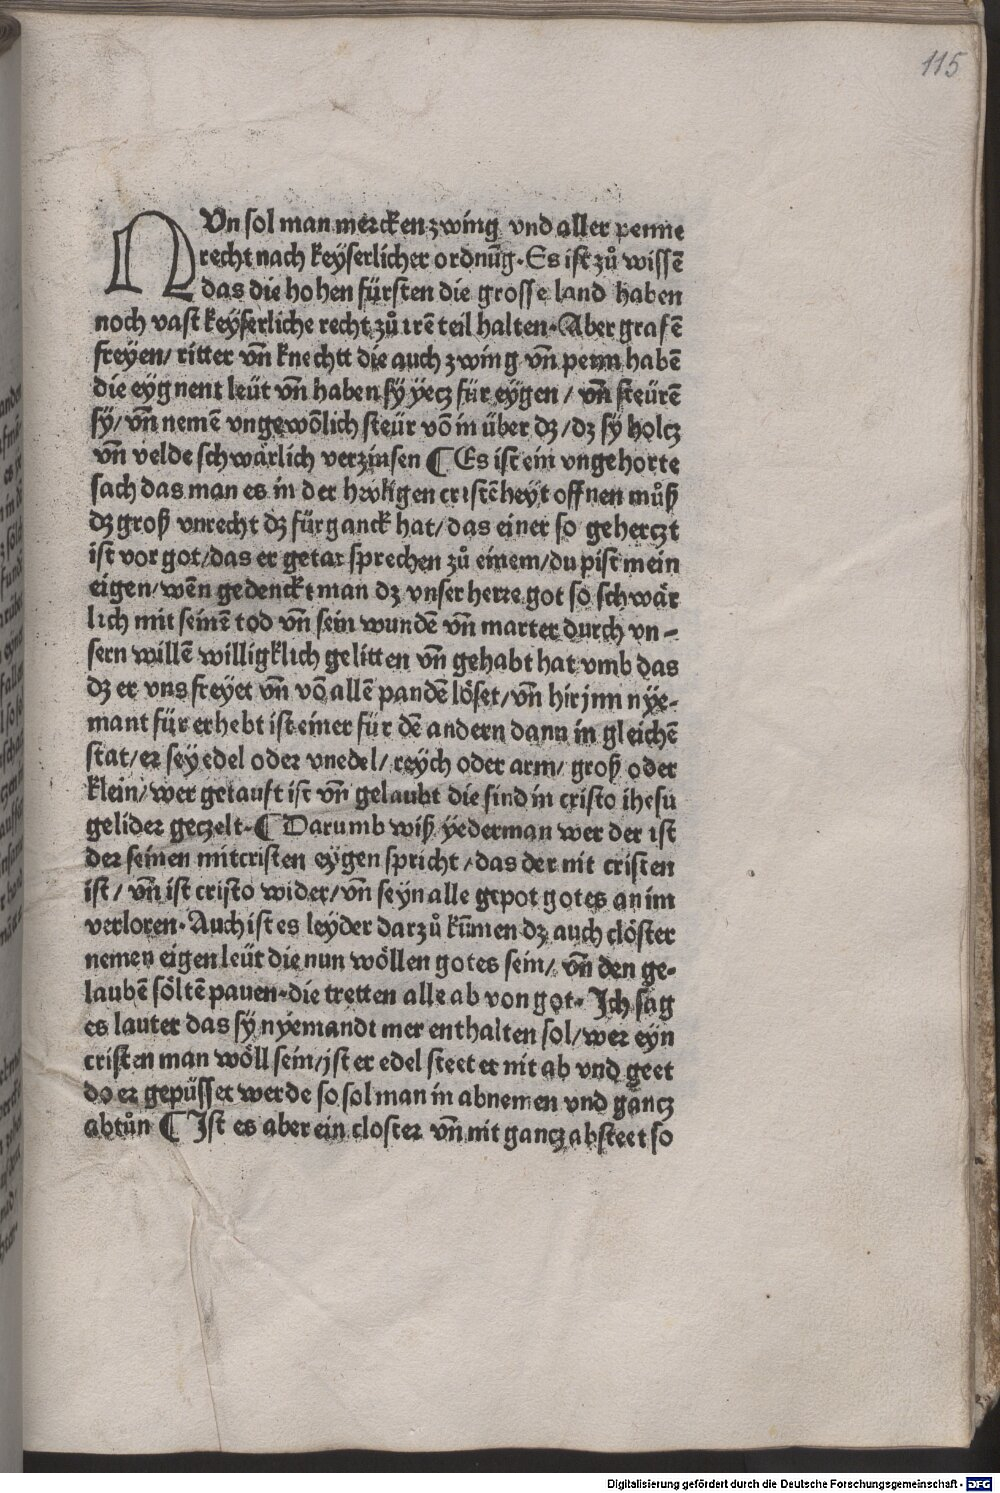 115
NVn sol man mercken zwing vnd aller penne
recht nach keÿserlicher ordnūg. Es ist zů wissē
das die hohen fürsten die grosse land haben
noch vast keÿserliche recht zů irē teil halten. Aber grafē
freyen/ ritter vn̄ knechtt die auch zwing vn̄ penn habē
die eÿgnent leüt vn̄ haben sÿ ÿecz für eÿgen / vn̄ steürē
sÿ/ vn̄ nemē vngewōlich steür vō in über dz/dz sÿ holcz
vn̄ velde schwärlich verzinsen ¶ Es ist ein vngehorte
sach das man es in der heyligen cristēheÿt offnen můß
dz groß vnrecht dz fürganck hat/das einer so geherczt
ist vor got/das er getar sprechen zů einem/du pist mein
eigen/wēn gedenckt man dz vnser herre got so schwär
lich mit seinē tod vn̄ sein wundē vn̄ marter durch vn-
sern willē willigklich gelitten vn̄ gehabt hat vmb das
dz er vns freÿet vn̄ vō allē pandē löset/vn̄ hirjnn nÿe-
mant für erhebt ist einer für dē andern dann in gleichē
stat/er seÿ edel oder vnedel/ reÿch oder arm/ groß oder
klein/wer getauft ist vn̄ gelaubt die sind in cristo ihesu
gelider geczelt. ¶ Darumb wiß ÿederman wer der ist
der seinen mitcristen eÿgen spricht/das der nit cristen
ist/ vn̄ ist cristo wider/vn̄ seyn alle gepot gotes an im
verloren. Auch ist es leÿder darzů kūmen dz auch clöster
nemen eigen leüt die nun wöllen gotes sein/ vn̄ den ge-
laubē söltē pauen. die tretten alle ab von got. Ich sag
es lauter das sÿ nÿemandt mer enthalten sol/wer eyn
cristen man wöll sein/jst er edel steet er nit ab vnd geet
do er gepüsset werde so sol man in abnemen vnd gancz
abtůn ¶ Ist es aber ein closter vn̄ nit gancz absteet so
Digitalisierung gefördert durch die Deutsche Forschungsgemeinschaft - DFG